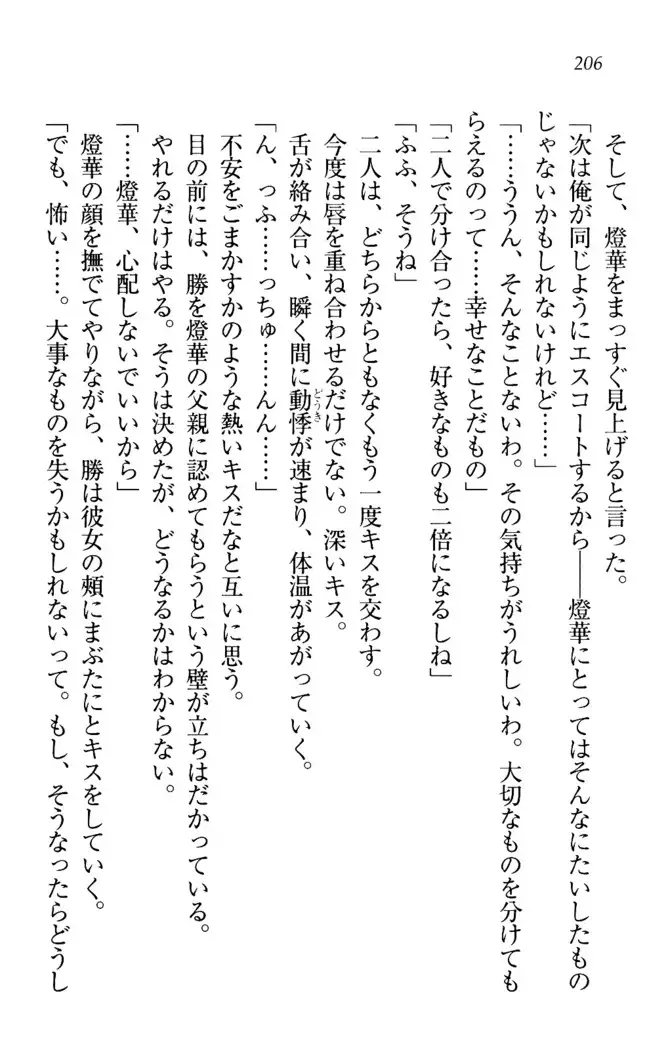 206
そして、燈華をまっすぐ見上げると言った。
「次は俺が同じようにエスコートするから――燈華にとってはそんなにたいしたもの
じゃないかもしれないけれど……」
「……ううん、そんなことないわ。その気持ちがうれしいわ。大切なものを分けても
らえるのって……幸せなことだもの」
「二人で分け合ったら、好きなものも二倍になるしね」
「ふふ、そうね」
二人は、どちらからともなくもう一度キスを交わす。
今度は唇を重ね合わせるだけでない。深いキス。
舌が絡み合い、瞬く間に動悸が速まり、体温があがっていく。
どうき
「ん、っふ……っちゅ……んん……」
不安をごまかすかのような熱いキスだなと互いに思う。
目の前には、勝を燈華の父親に認めてもらうという壁が立ちはだかっている。
やれるだけはやる。そうは決めたが、どうなるかはわからない。
「……燈華、心配しないでいいから」
燈華の顔を撫でてやりながら、勝は彼女の頰にまぶたにとキスをしていく。
「でも、怖い……。大事なものを失うかもしれないって。もし、そうなったらどうし